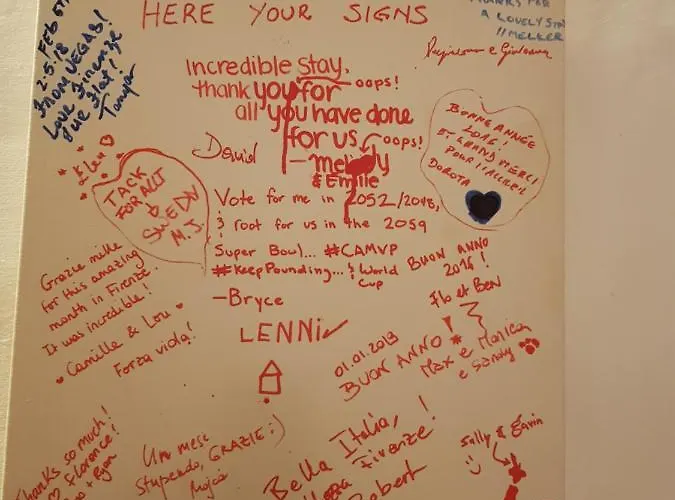 HERE YOUR SIGNS
THANKS FOR
A LOVELY STAY
FEB 5TH
2.5.18
FROM VEGAS!
Love Firenze
our Flat!
Tanya
Incredible stay,
thank you for oops!
all you have done
for us oops!
— melody
& Emilie
David
BONNE ANNEE
2016!
ET GRAND MERCI
POUR L'ACCUEIL
DOROTA
TACK
FOR ALLT
SWEDEN
M.J.
Vote for me in 2052/2048,
& root for us in the 2059
Super Bowl... #CAMVP
#KeepPounding... & World
Cup
—Bryce
BUON ANNO
2016!
Flo et Ben
Grazie mille
for this amazing
month in Firenze.
It was incredible!
Camille & Lou
Forza viola!
LENNI
01.01.2019
BUON ANNO
Max e Monica
e Sandy
Thanks so much!
Florence!
Un mese
Stupendo, GRAZIE :)
Bella Italia,
Firenze!
Robert
Sally & Gavin